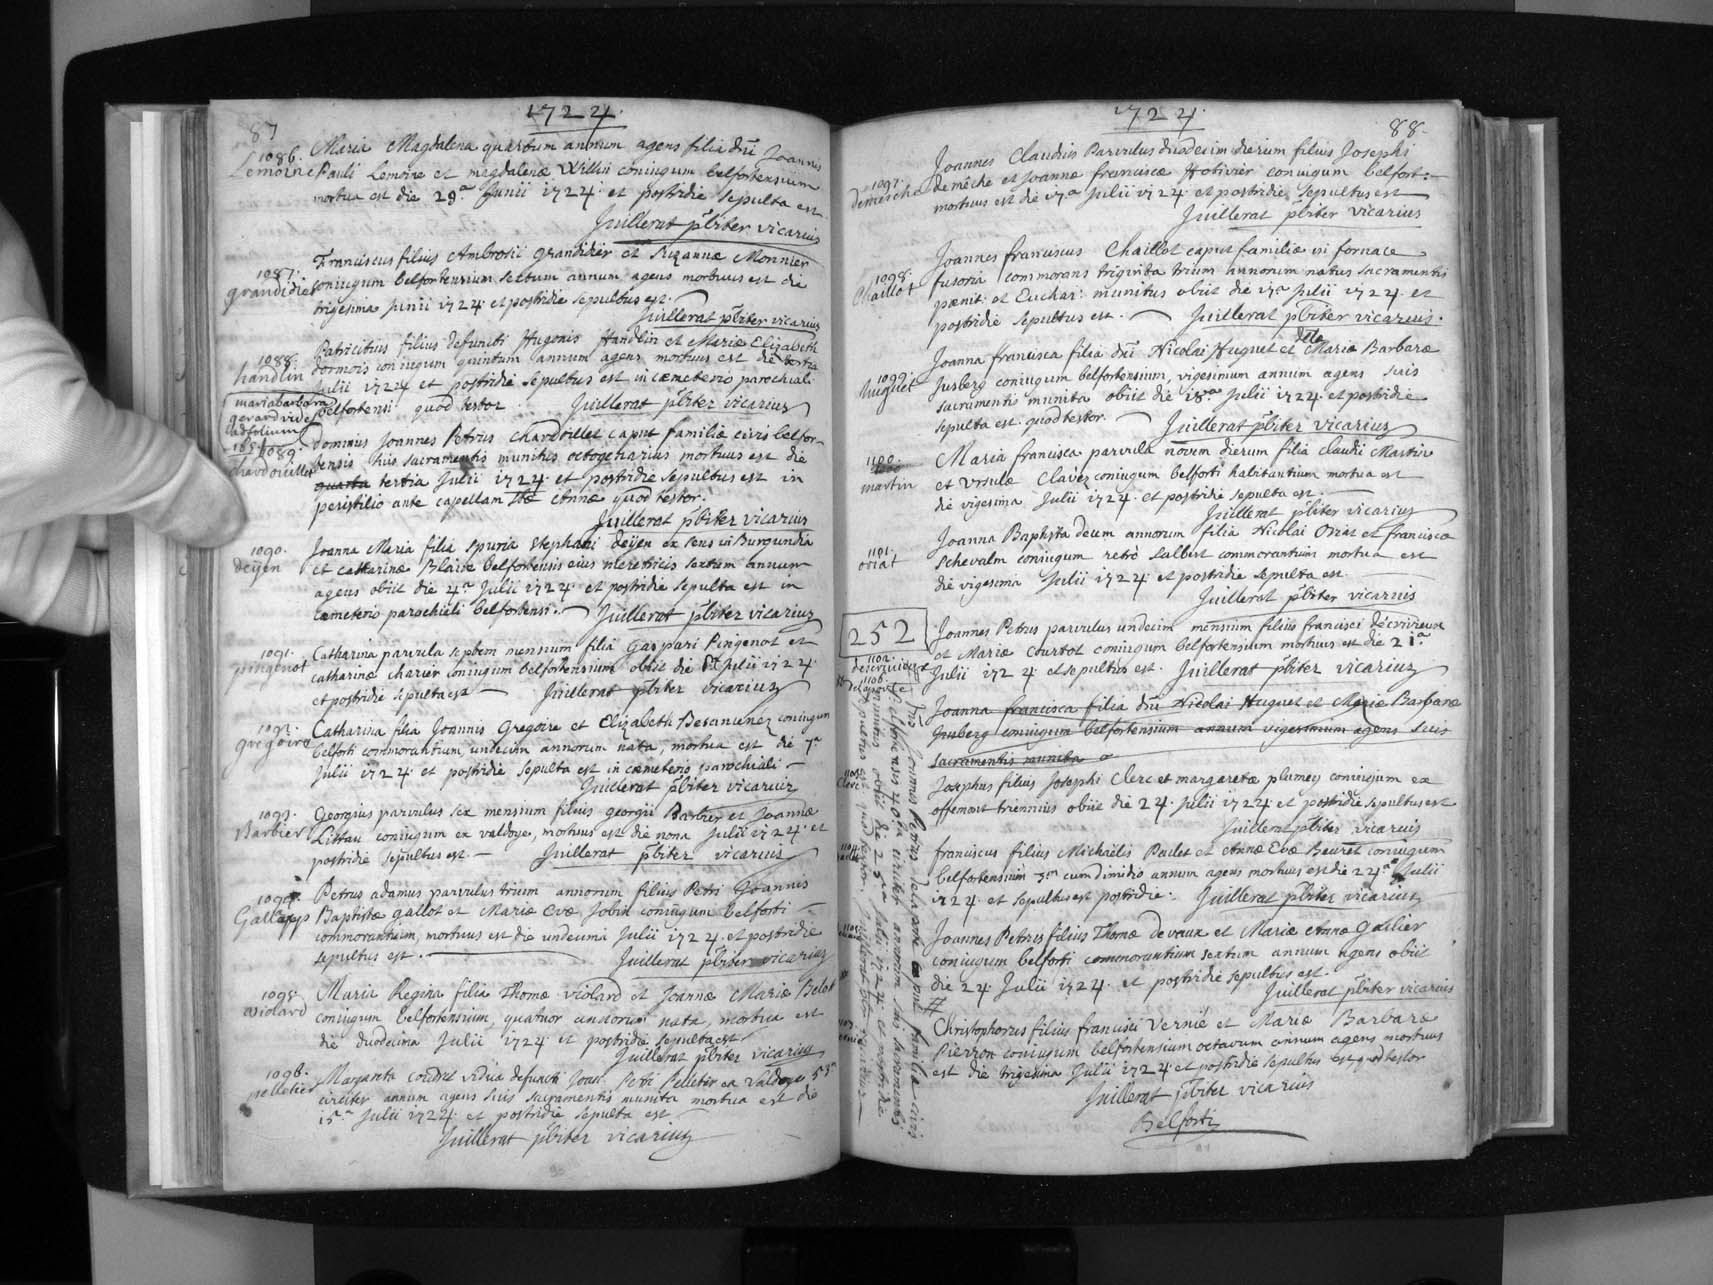 1724.
87
1086.
Lemoine
Maria Magdalena quartum annum agens filia dni Joannis
Pauli Lemoine et magdalenæ Willin coniugum belfortensium
mortua est die 29a Junii 1724. et postridie sepulta est.
Juillerat pbiter vicarius
1087.
grandidie
Franciscus filius Ambrosii grandidier et Suzannæ Monnier
coniugum belfortensium septum annum agens mortuus est die
trigesima junii 1724. et postridie sepultus est.
Juillerat pbiter vicarius
1088.
handlin
Patricius filius defuncti Hugonis Handlin et Mariæ Elizabeth
Dormois coniugum quintum annum agens mortuus est die tertia
Julii 1724 et postridie sepultus est in cæmeterio parochiali
belfortensi quod testor. Juillerat pbiter vicarius
maria barbara
gerard vide
ad folium
1089.
chardouillet
Dominus Joannes Petrus chardoillet caput familiæ civis belfor-
tensis suis sacramentis munitus octogenarius mortuus est die
quarta tertia Julii 1724. et postridie sepultus est in
peristilio ante capellam Stæ Annæ quod testor.
Juillerat pbiter vicarius
1090.
deijen
Joanna Maria filia spuria Stephani deijen ex sens in Burgundia
et catharinæ Blaise belfortensis eius meretricis sextum annum
agens obiit die 4a Julii 1724 et postridie sepulta est in
cæmeterio parochiali belfortensi. Juillerat pbiter vicarius
1091.
pingenot
Catharina parvula septem mensium filia Gaspari Pingenot et
catharinæ charier coniugum belfortensium obiit die Julii 1724.
et postridie sepulta est Juillerat pbiter vicarius
1092.
gregoire
Catharina filia Joannis Gregoire et Elizabeth coniugum
belforti commorantium, undecim annorum nata, mortua est die 7a
Julii 1724 et postridie sepulta est in cæmeterio parochiali
Juillerat pbiter vicarius
1093.
Barbier
Georgius parvulus sex mensium filius georgii Barbier et Joannæ
Littau coniugum ex valdoye, mortuus est die nona Julii 1724. et
postridie sepultus est. Juillerat pbiter vicarius
1094.
Petrus adamus parvulus trium annorum filius Petri Joannis
Baptistæ gallot et Mariæ Evæ Jobin coniugum belforti
commorantium, mortuus est die undecima Julii 1724. et postridie
sepultus est. Juillerat pbiter vicarius
1095.
violard
Maria Regina filia Thomæ violard et Joannæ Mariæ Belot
coniugum belfortensium, quatuor annorum nata, mortua est
die duodecima Julii 1724. et postridie sepulta est
Juillerat pbiter vicarius
1096.
pelletier
Margarita vidua defuncti Joan Petri Pelletier ex Valdoye 55m
circiter annum agens suis sacramentis munita mortua est die
15a Julii 1724. et postridie sepulta est
Juillerat pbiter vicarius
1724.
88.
1097.
demeche
Joannes Claudius Parvulus duodecim dierum filius Josephi
demêche et Joannæ franciscæ coniugum belfort:
mortuus est die 17a Julii 1724 et postridie sepultus est
Juillerat pbiter vicarius
1098.
Chaillot
Joannes franciscus Chaillot caput familiæ in fornace
fusoria commorans triginta trium annorum natus sacramentis
pænit: et Euchar: munitus obiit die 17a Julii 1724. et
postridie sepultus est. Juillerat pbiter vicarius.
1099.
huguet
Joanna francisca filia dni Nicolai Huguet et Mariæ Barbaræ
Jusberg coniugum belfortensium, vigesimum annum agens suis
sacramentis munita obiit die 18a Julii 1724. et postridie
sepulta est. quod testor. Juillerat pbiter vicarius
1100.
martin
Maria francisca parvula novem dierum filia claudii Martin
et Ursulæ Clavéz coniugum belforti habitantium mortua est
die vigesima Julii 1724. et postridie sepulta est
Juillerat pbiter vicarius
1101.
oriat
Joanna Baptista decem annorum filia Nicolai Oriat et franciscæ
Schevalm coniugum retrò Salbert commorantium mortua est
die vigesima Julii 1724 et postridie sepulta est.
Juillerat pbiter vicarius
252
1102.
Joannes Petrus parvulus undecim mensium filius francisci
et Mariæ Courtot coniugum belfortensium mortuus est die 21a
Julii 1724 et sepultus est. Juillerat pbiter vicarius
1106.
delaporte
Joanna francisca filia dni Nicolai Huguet et Mariæ Barbaræ
Jusberg coniugum belfortensium annum vigesimum agens suis
sacramentis munita
1103.
Clerc
Josephus filius Josephi Clerc et margaretæ plumey coniugum ex
offemont triennius obiit die 24. Julii 1724 et postridie sepultus est
Juillerat pbiter vicarius
1104.
franciscus filius Michaelis Paclet et Annæ Evæ Beuret coniugum
belfortensium 3m cum dimidio annum agens mortuus est die 24a Julii
1724. et sepultus est postridie: Juillerat pbiter vicarius
1105.
Joannes Petrus filius Thomæ devaux et Mariæ Annæ Galier
coniugum belforti commorantium sextum annum agens obiit
die 24 Julii 1724. et postridie sepultus est.
Juillerat pbiter vicarius
#
1107.
Christophorus filius francisci Vernié et Mariæ Barbaræ
Pierron coniugum belfortensium octavum annum agens mortuus
est die trigesima Julii 1724 et postridie sepultus est quod testor
Juillerat pbiter vicarius
Belforti
Joannes Petrus delaporte caput familiæ civis
belfortensis 40ta circiter annorum suis sacramentis
munitus obiit die 25a Julii 1724 et postridie
sepultus est quod testor. Juillerat pbiter vicarius